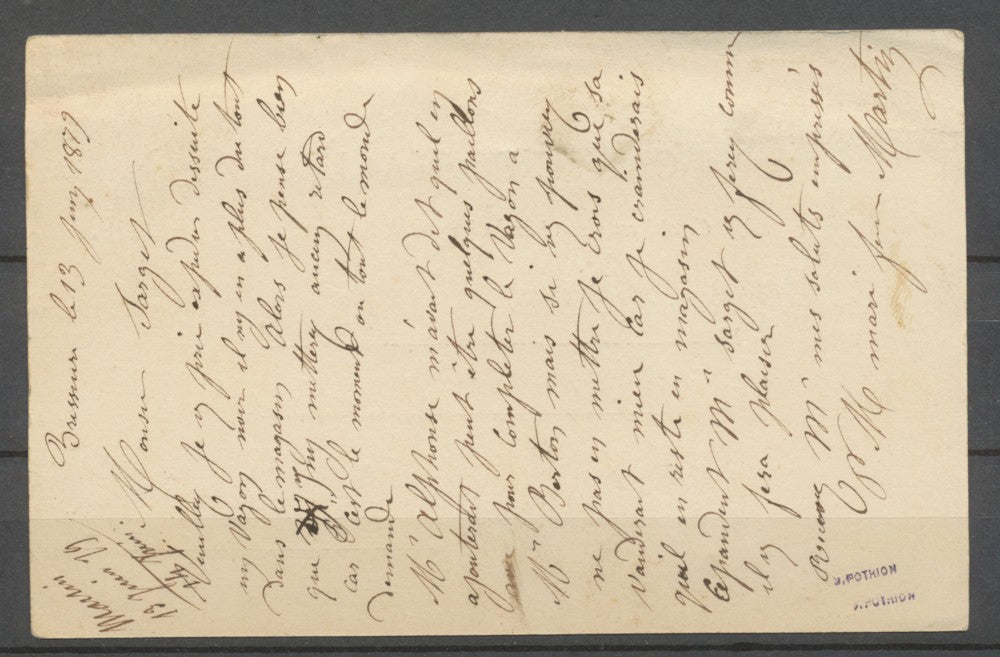 Bressuire le 13 juin 1879
Monsieur Sarget
Veuillez je vz prie expedier dessuite
un Vagon noir il ny en a plus du tout
dans le magasin Alors je pense bien
que vz ny metterez aucun retard
car c'est le moment ou tout le monde
demande
Mr Alphonse m'avait dit quil en
ajouterait peut être quelques paillons
pour completer le Vagon a
Mr Berton mais si vz pouvez
ne pas en mettre je crois que sa
vaudrait mieu car je crainderais
quil en reste en magasin
Cependant Mr Sarget vz ferez comme
il vz fera plaisir
Recevez Mr mes saluts empressés
Mari
13 juin 79
Martin
J. POTHION
J. POTHION